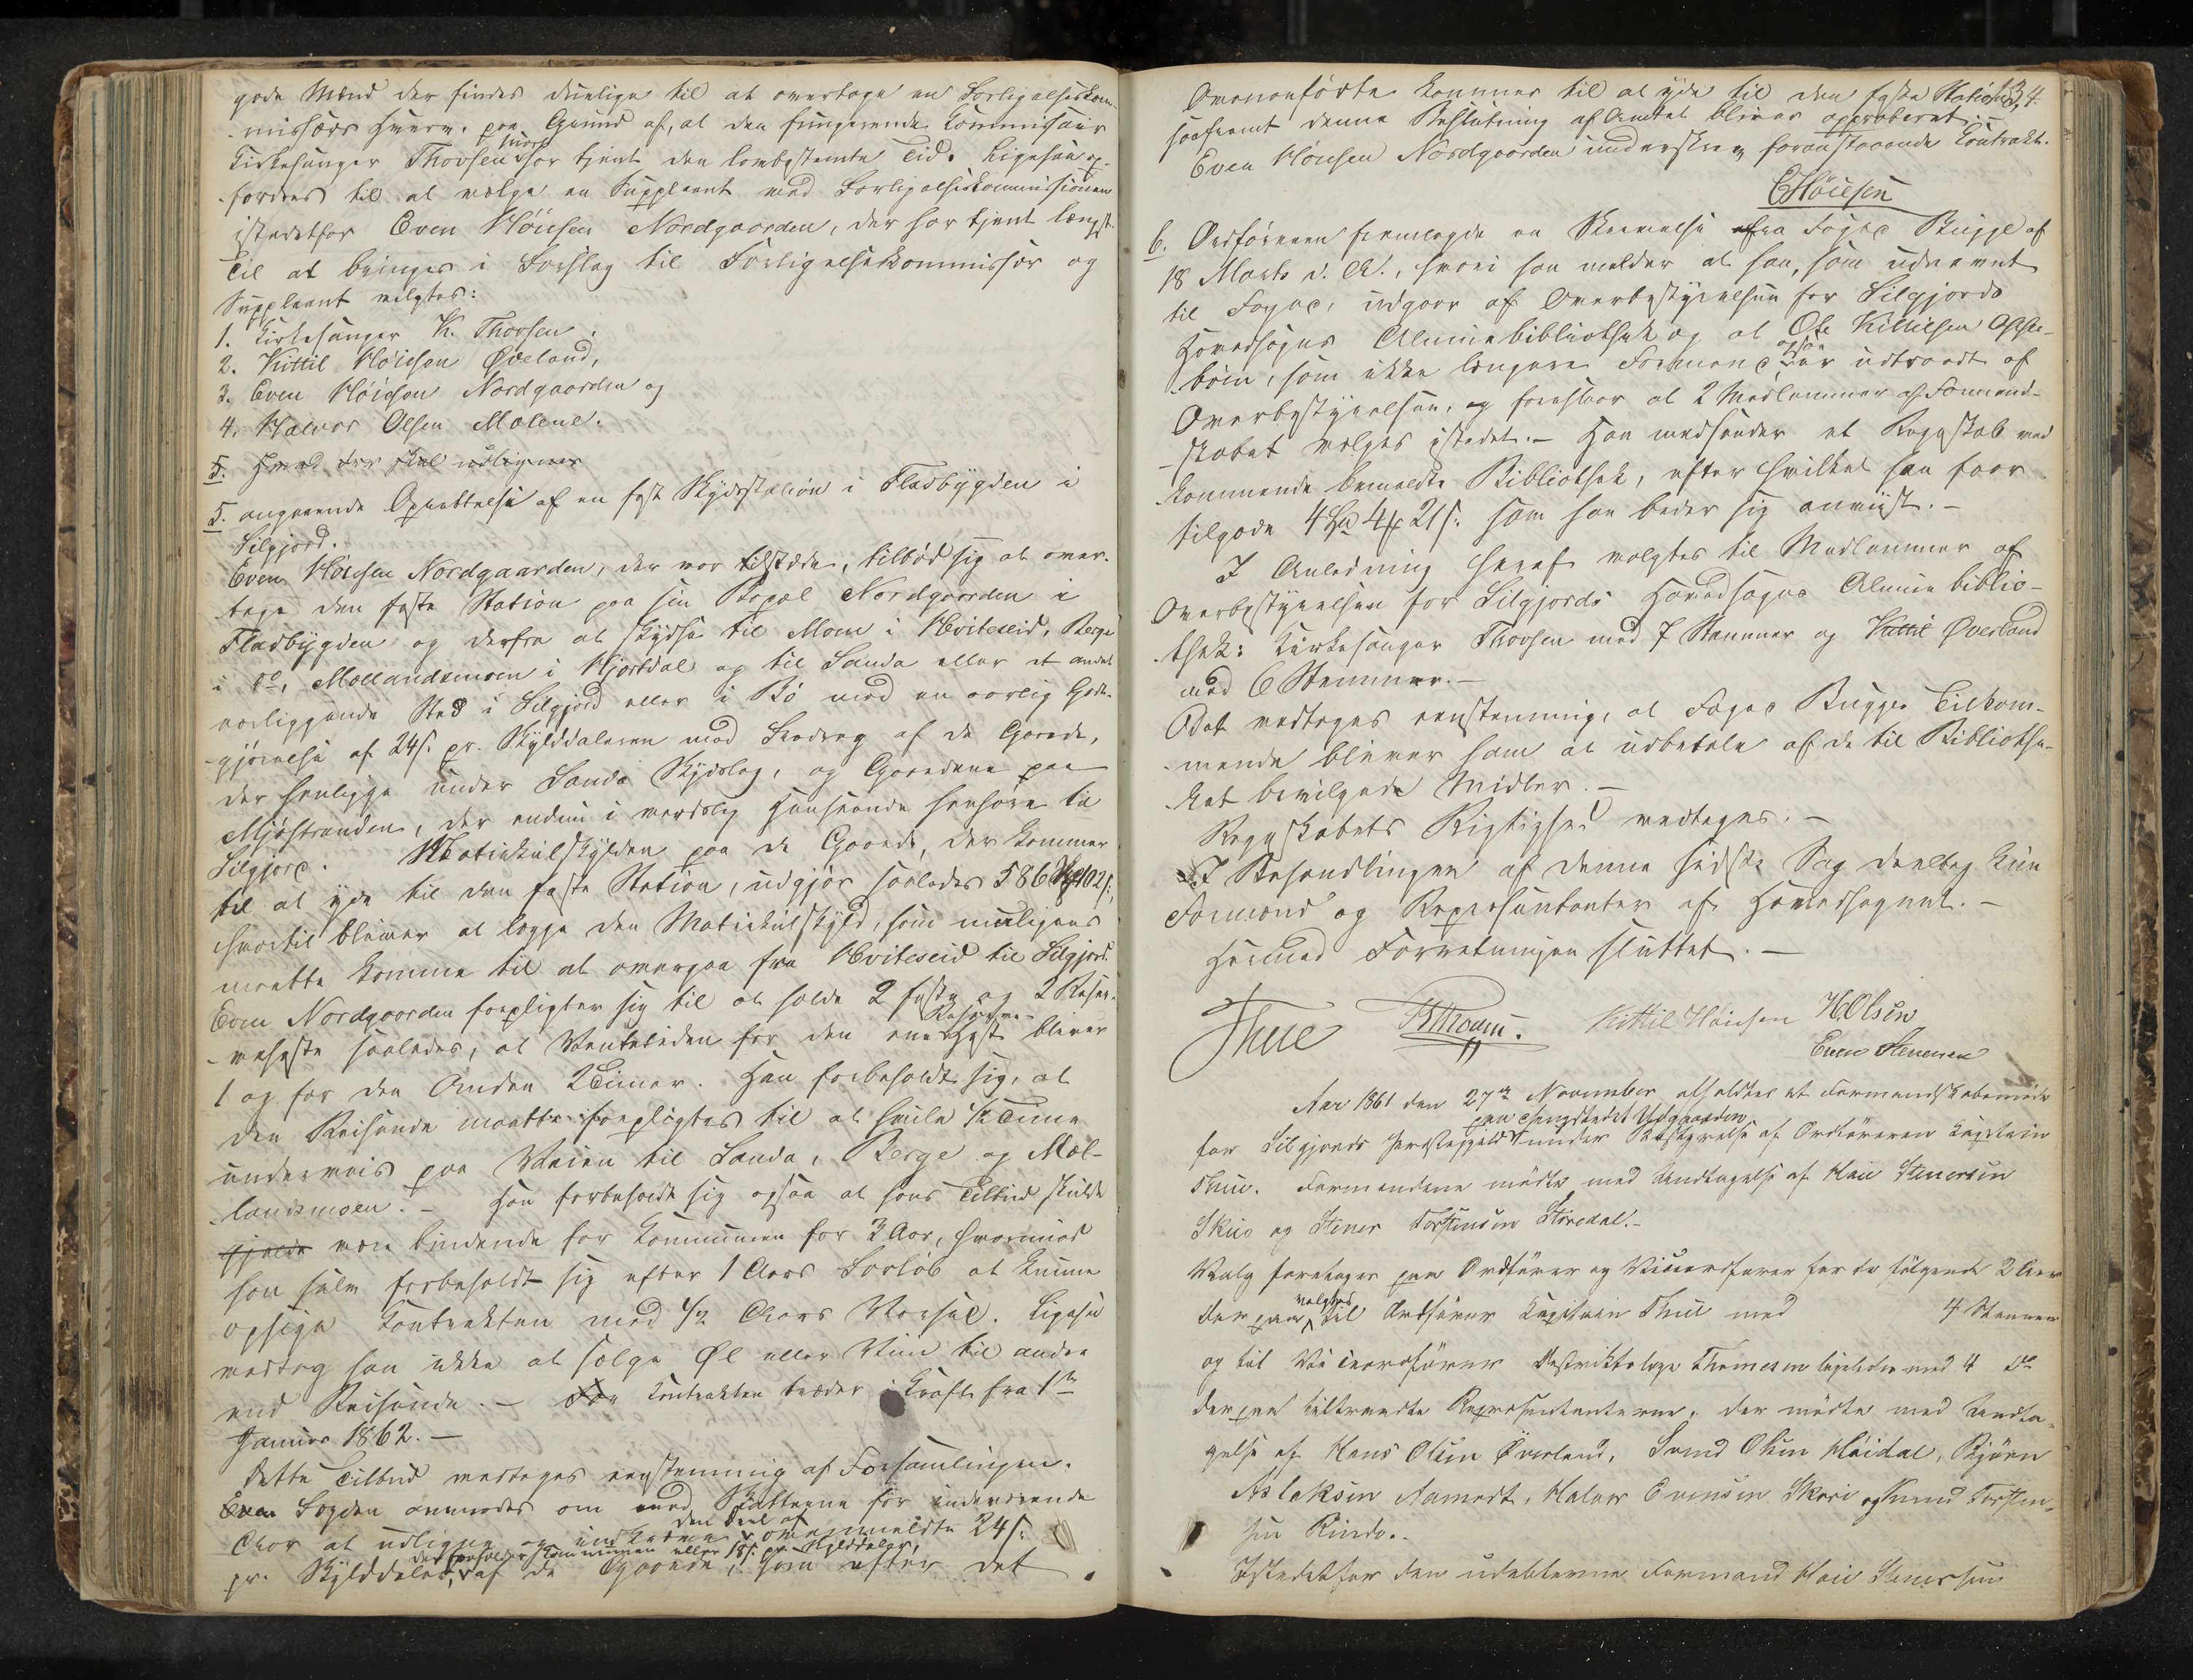 gode Mænd der findes duelige til at overtage en Forligelseskom-
missærs Hverv, paa Grund af, at den fungerende Kommissair
Kirkesanger Thorsen snart har tjent den lovbestemte Tid. Ligesaa op-
fordres til at vælge en Suppleant ved Forligelseskommissionen
istedetfor Even Høiesen Nordgaarden, der har tjent længst.
Til at bringes i Forslag til Forligelseskommissær og
Suppleant valgtes:
1. Kirkesanger K. Thorsen.
2. Kittil Høiesen Øverland,
3. Even Høiesen Nordgaarden og
4. Halvor Olsen Molene.
5. Hvad der skal udlignes
5. angaaende Oprettelse af en fast Skydsstation i Fladbygden i
Silgjord.
Even Høiesen Nordgaarden, der var tilstæde, tilbød sig at over-
tage den faste Station paa sin Bopæl Nordgaarden i
Fladbygden og derfra at skydse til Moen i Hviteseid, Berge
i do, Mollandsmoen i Hjertdal og til Sanda eller et andet
nærliggende Sted i Silgjord eller i Bø mod en aarlig Godt-
gjørelse af 24 s. pr. Skylddaleren med Fradrag af de Gaarde,
der henligge under Sanda Skydslag, og Gaardene paa
Mjøstranden, der endnu i verdslig Henseende henhøre til
Silgjord. Matrikulskylden paa de Gaarde, der kommer
til at yde til den faste Station, udgjør saaledes 586 102 s.,
hvortil bliver at lægge den Matrikulskyld, som muligens
maatte komme til at overgaa fra Hviteseid til Silgjord.
Even Nordgaarden forpligter sig til at holde 2 faste og 2 Reser-
veheste saaledes, at Ventetiden for den ene Reserve-Hest bliver
1 og for den Anden 2 Timer. Han forbeholdt sig, at
den Reisende maatte forpligtes til at hvile ½ Time
underveis paa Veien til Sanda, Berge og Mol-
landsmoen. – Han forbeholdt sig ogsaa at hans Tilbud skulde
gjælde være bindende for Kommunen for 3 Aar, hvorimod
han selv forbeholdt sig efter 1 Aars Forløb at kunne
opsige Kontrakten med ½ Aars Varsel. Ligesaa
vedtog han ikke at sælge Øl eller Viin til andre
end Reisende. – For Kontrakten træder i Kraft fra 1ste
Januar 1862. –
Dette Tilbud vedtoges eenstemmig af Forsamlingen.
Even Fogden anmodes om med Skatterne for indeværende
Aar at udligne og indkræve den Deel af ovenmeldte 24 s.
pr. Skylddaler, der forholder Kommunen eller 18 s. pr. Skylddaler, af de Gaarde, som efter det
134.
Ovenanførte kommer til at yde til den faste Station,
saafremt denne Beslutning af Amtet bliver approberet. –
Even Høiesen Nordgaarden underskrev foranstaaende Kontrakt.
EHöiesen
6. Ordføreren fremlagde en Skrivelse fra Foged Bugge af
18 Marts d. A., hvori han melder at han, som udnævnt
til Foged, udgaar af Overbestyrelsen for Silgjords
Hovedsogns Almuebibliothek og at Ole Kittilsen Opste-
bøen, som ikke længere Formand ogsaa er udtraadt af
Overbestyrelsen, og foreslaar at 2 Medlemmer af Formand-
skabet vælges istedet. – Han medsender et Regnskab ved-
kommende bemeldte Bibliothek, efter hvilket han faar
tilgode 4 Spd 4 21 s. som han beder sig anviist. –
I Anledning heraf valgtes til Medlemmer af
Overbestyrelsen for Silgjords Hovedsogns Almuebiblio-
thek: Kirkesanger Thorsen med 7 Stemmer og Kittil Øverland
med 6 Stemmer. –
Det vedtoges eenstemmig, at Foged Bugges Tilkom-
mende bliver ham at udbetale af de til Bibliothe-
ket bevilgede Midler. –
Regnskabets Rigtighed vedtoges. –
I Behandlingen af denne sidste Sag deeltog kun
Formænd og Repræsentanter af Hovedsognet. –
Hermed Forretningen sluttet. –
Thue Kittil Höiesen H. Olsen
Even Stenersen
Aar 1861 den 27de November afholdtes et Formandskabsmøde
for Silgjords Præstegjeld paa Thingstedet Utgaarden under Bestyrelse af Ordføreren Kapitain
Thue. Formændene mødte med Undtagelse af Høie Stenersen
Skuo og Stener Torstensen Storedal. –
Valg foretoges paa Ordfører og Viceordfører for de følgende 2 Aar
der paa valgtes til Ordfører Kapitain Thue med 4 Stemmer
og til Viceordfører Distriktslæge Thomesen ligeledes med 4 do
derpaa tiltraadte Repræsentanterne, der mødte med Undta-
gelse af Hans Olsen Överland, Svend Olsen Høidal, Bjørn
Aslaksen Aamodt, Halvor Evensen Skori og Knud Torsten-
sen Rinde. –
Istedetfor den udeblevne Formand Høie Stenersen